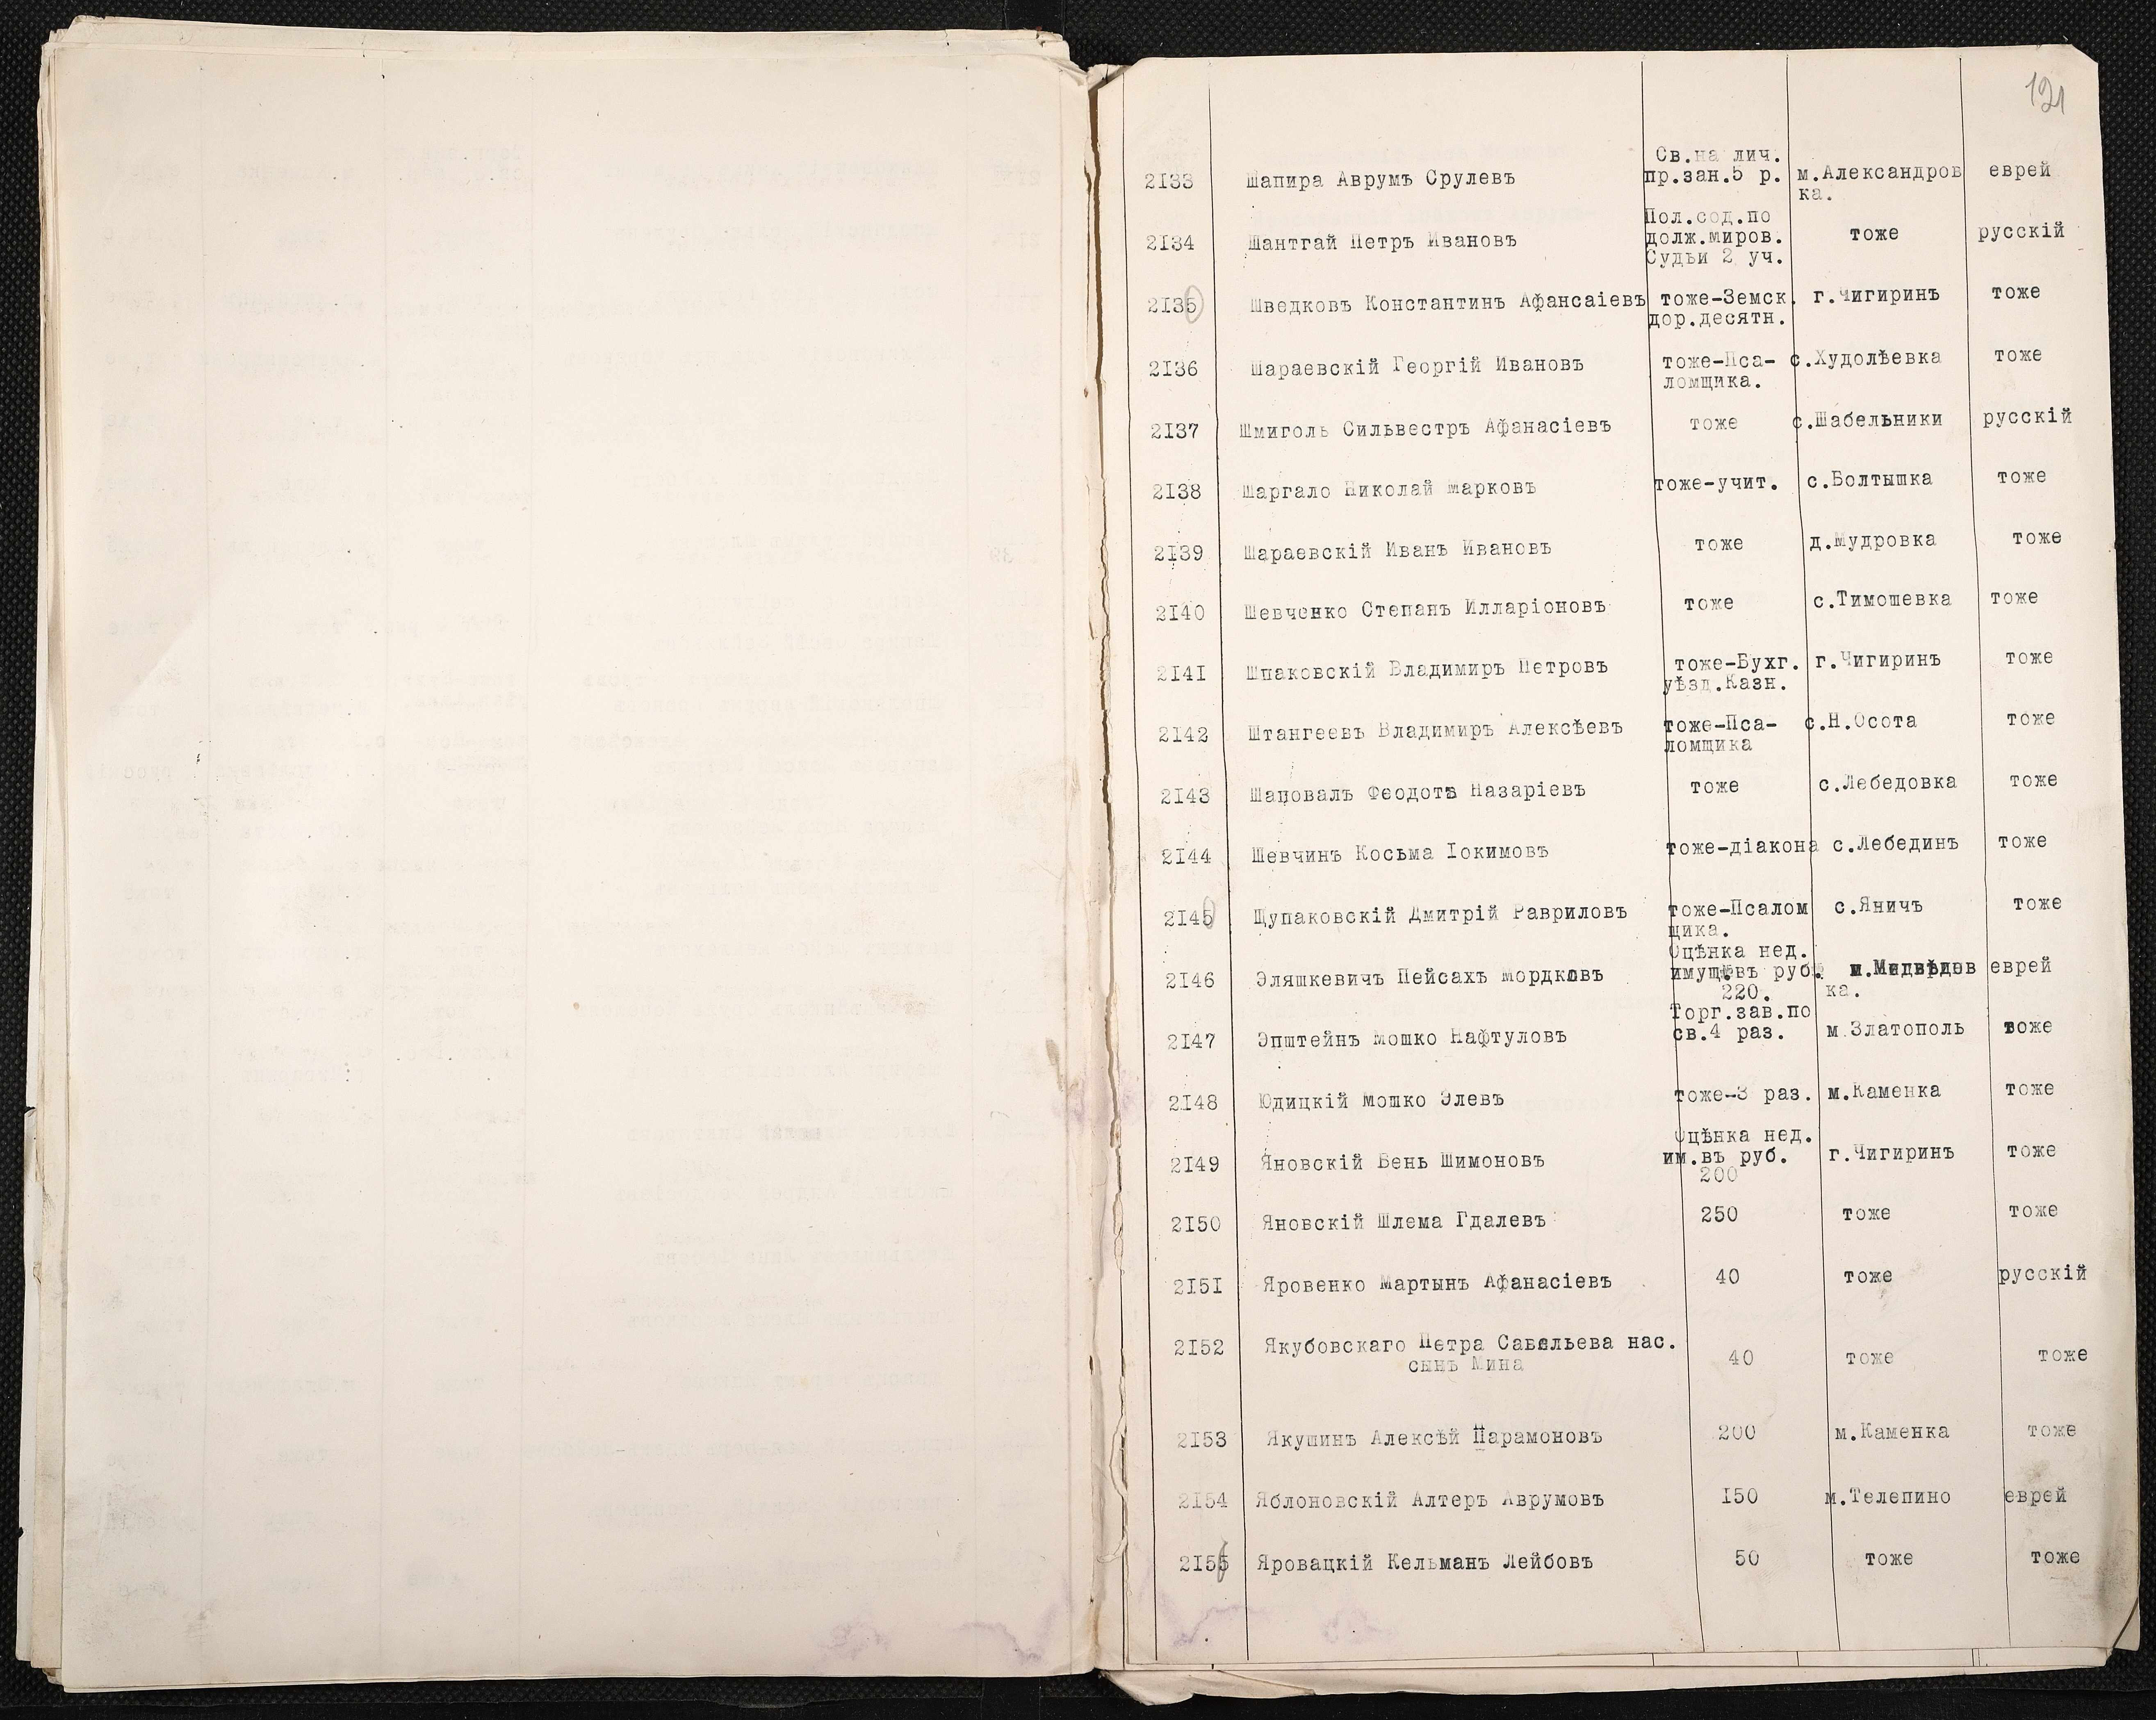 121
Св.на лич.
2133 Шапира Аврумъ Срулевъ пр.зан.5 р. м.Александров еврей
ка.
Пол.сод.по
2134 Шантгай Петръ Ивановъ долж.миров. тоже русскій
Судьи 2 уч.
2135 Шведковъ Константинъ Афансаіевъ тоже-Земск. г.Чигиринъ тоже
дор.десятн.
2136 Шараевскій Георгій Ивановъ тоже-Пса- с.Худолѣевка тоже
ломщика.
2137 Шмиголь Сильвестръ Афанасіевъ тоже с.Шабельники русскій
2138 Шаргало Николай Марковъ тоже-учит. с.Болтышка тоже
2139 Шараевскій Иванъ Ивановъ тоже д.Мудровка тоже
2140 Шевченко Степанъ Илларіоновъ тоже с.Тимошевка тоже
2141 Шпаковскій Владимиръ Петровъ тоже-Бухг. г.Чигиринъ тоже
уѣзд.Казн.
2142 Штангеевъ Владимиръ Алексѣевъ тоже-Пса- с.Н.Осота тоже
ломщика
2143 Шаповалъ Феодотъ Назаріевъ тоже с.Лебедовка тоже
2144 Шевчинъ Косьма Іокимовъ тоже-діакона с.Лебединъ тоже
2145 Щупаковскій Дмитрій Равриловъ тоже-Псалом с.Яничъ тоже
щика.
Оцѣнка нед.
2146 Эляшкевичъ Пейсахъ Мордковъ имущ.въ руб. м.Медвѣдов еврей
220. ка.
Торг.зав.по
2147 Эпштейнъ Мошко Нафтуловъ св.4 раз. м.Златополь тоже
2148 Юдицкій Мошко Элевъ тоже-3 раз. м.Каменка тоже
Оцѣнка нед.
2149 Яновскій Бень Шимоновъ им.въ руб. г.Чигиринъ тоже
200
2150 Яновскій Шлема Гдалевъ 250 тоже тоже
2151 Яровенко Мартынъ Афанасіевъ 40 тоже русскій
2152 Якубовскаго Петра Савельева нас.
сынъ Мина 40 тоже тоже
2153 Якушинъ Алексѣй Парамоновъ 200 м.Каменка тоже
2154 Яблоновскій Алтеръ Аврумовъ 150 м.Телепино еврей
2155 Яровацкій Кельманъ Лейбовъ 50 тоже тоже